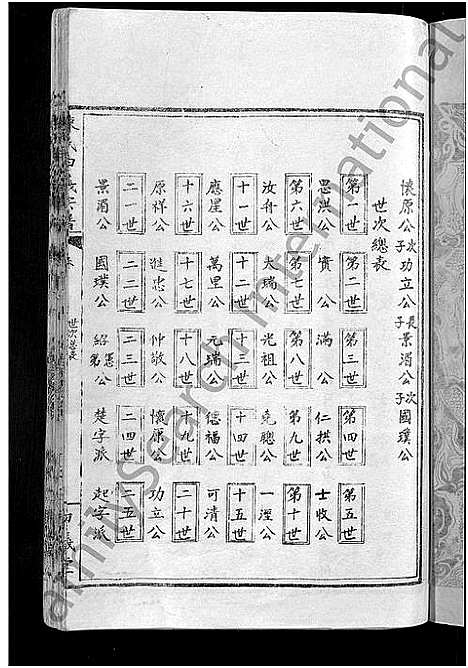 懷原公次子功立公長子景湄公次子國璞公
世次總表
第一世 第二世 第三世 第四世 第五世
思洪公 賓公 滿公 仁拱公 士收公
第六世 第七世 第八世 第九世 第十世
汝舟公 太瑞公 光祖公 堯聰公 一澄公
十一世 十二世 十三世 十四世 十五世
應星公 萬里公 元瑞公 德福公 可清公
十六世 十七世 十八世 十九世 二十世
原祥公 進忠公 仲敬公 懷原公 功立公
二一世 二二世 二三世 二四世 二五世
景湄公 國璞公 紹憲公 第 楚字派 起字派
世次總表
FamilySearch International